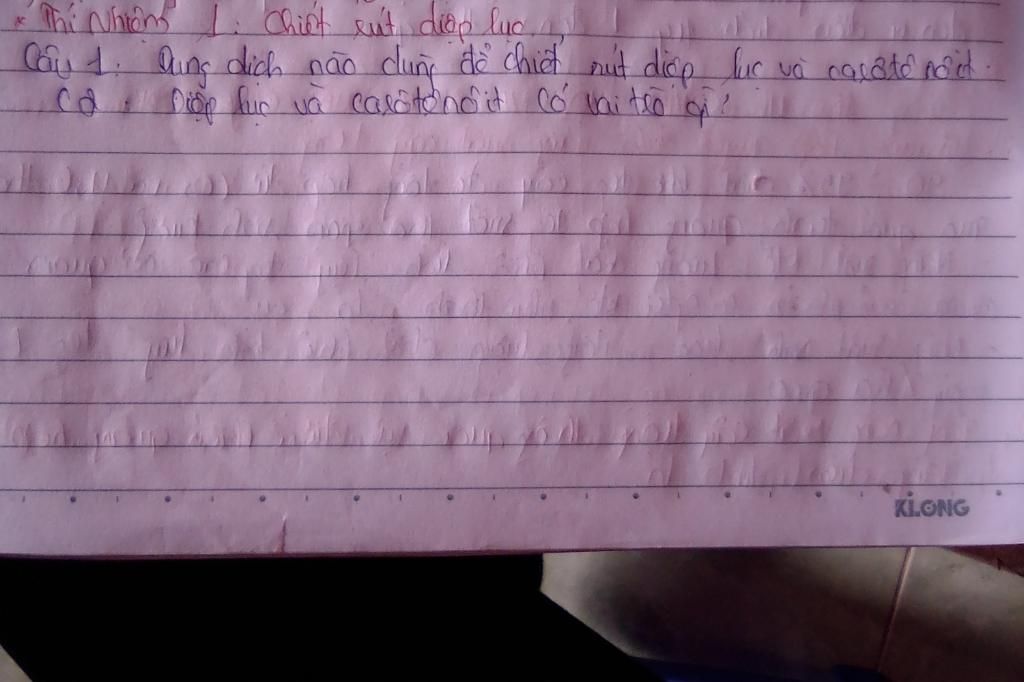 * Thí Nhiệm 1: Chiết xút diệp lục
Câu 1: Dung dịch nào dùng để chiết rút diệp lục và carôtênôit.
C2: Diệp lục và carôtênôit có vai trò gì?
KLONG